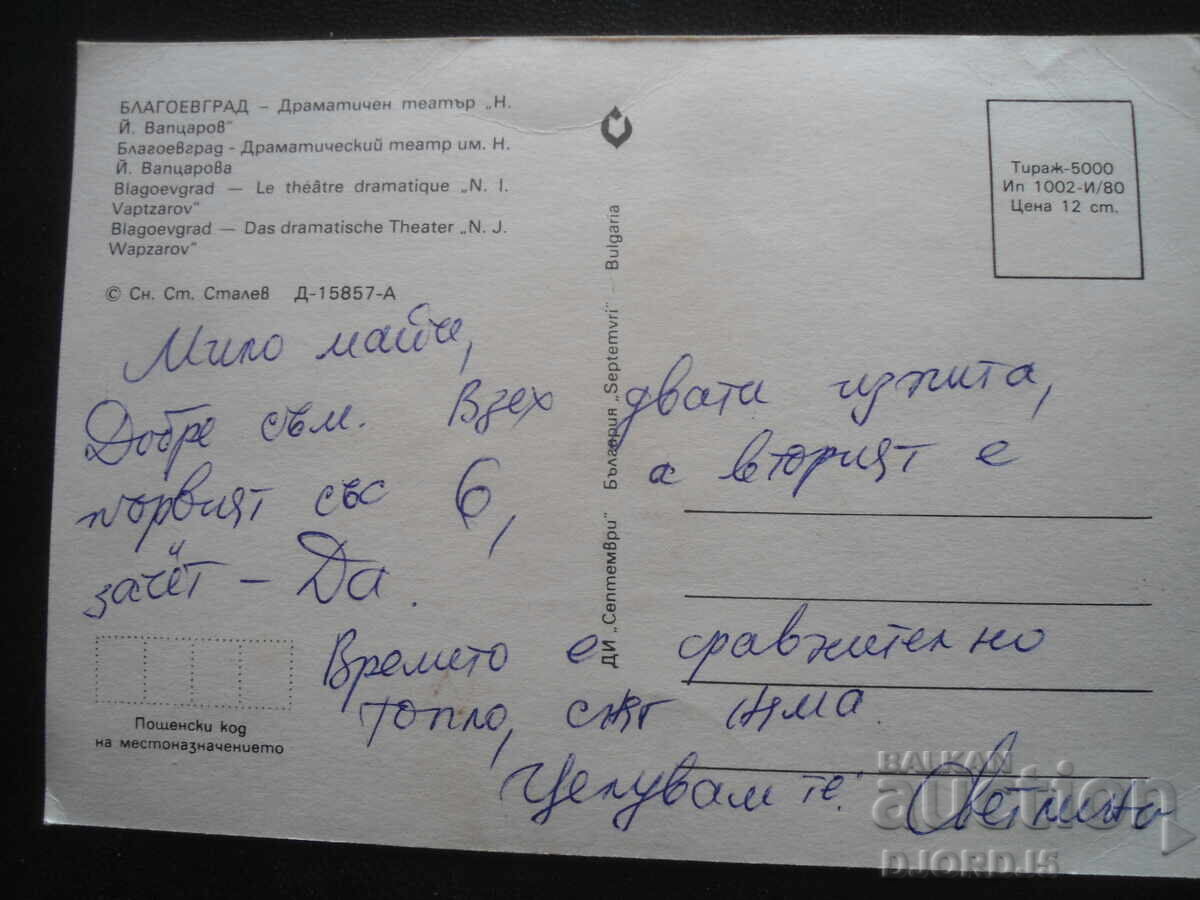 БЛАГОЕВГРАД – Драматичен театър „Н.
Й. Вапцаров"
Благоевград - Драматический театр им. Н.
Й. Вапцарова
Blagoevgrad — Le théâtre dramatique „N. I.
Vaptzarov"
Blagoevgrad — Das dramatische Theater „N. J.
Wapzarov"
© Сн. Ст. Сталев Д-15857-А
ДИ „Септември" България „Septemvri" – Bulgaria
Тираж-5000
Ип 1002-И/80
Цена 12 ст.
Мило майче,
Добре съм. Взех двата изпита,
първият със 6, а вторият е
зачёт – Да.
Времето е сравнително
топло, сняг няма.
Целувам те!
Пощенски код
на местоназначението
BALKAN
auction
DJORDJ5